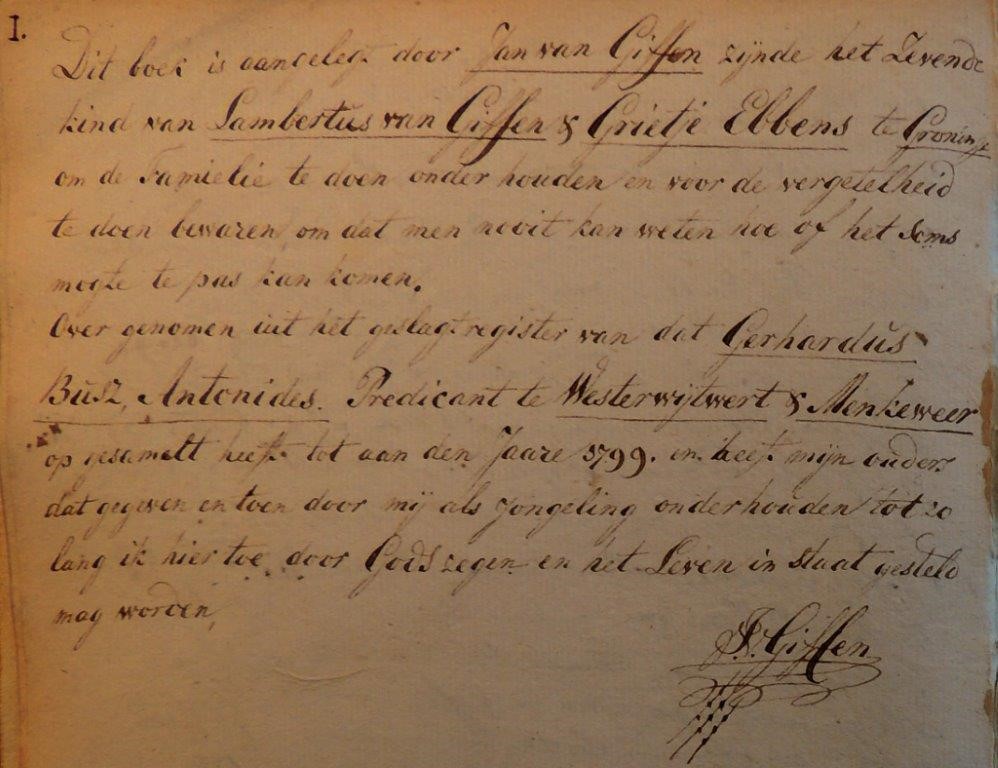 I.
Dit boek is aangelegt door Jan van Giffen zijnde het Zevende
kind van Lambertus van Giffen & Grietje Ebbens te Gronings
om de Famielie te doen onder houden en voor de vergetelheid
te doen bewaren, om dat men nooit kan weten hoe of het Soms
mogte te pas kan komen.
Over genomen uit het geslagtregister van dat Gerhardus
Busz, Antonides. Predicant te Westerwijtwert & Menkeweer
op gesamelt heeft tot aan den Jaare 1799. en heeft mijn ouders
dat gegeven en toen door mij als jongeling onderhouden tot zo
lang ik hier toe door Gods zegen en het Leven in staat gesteld
mag worden,
J. v. Giffen